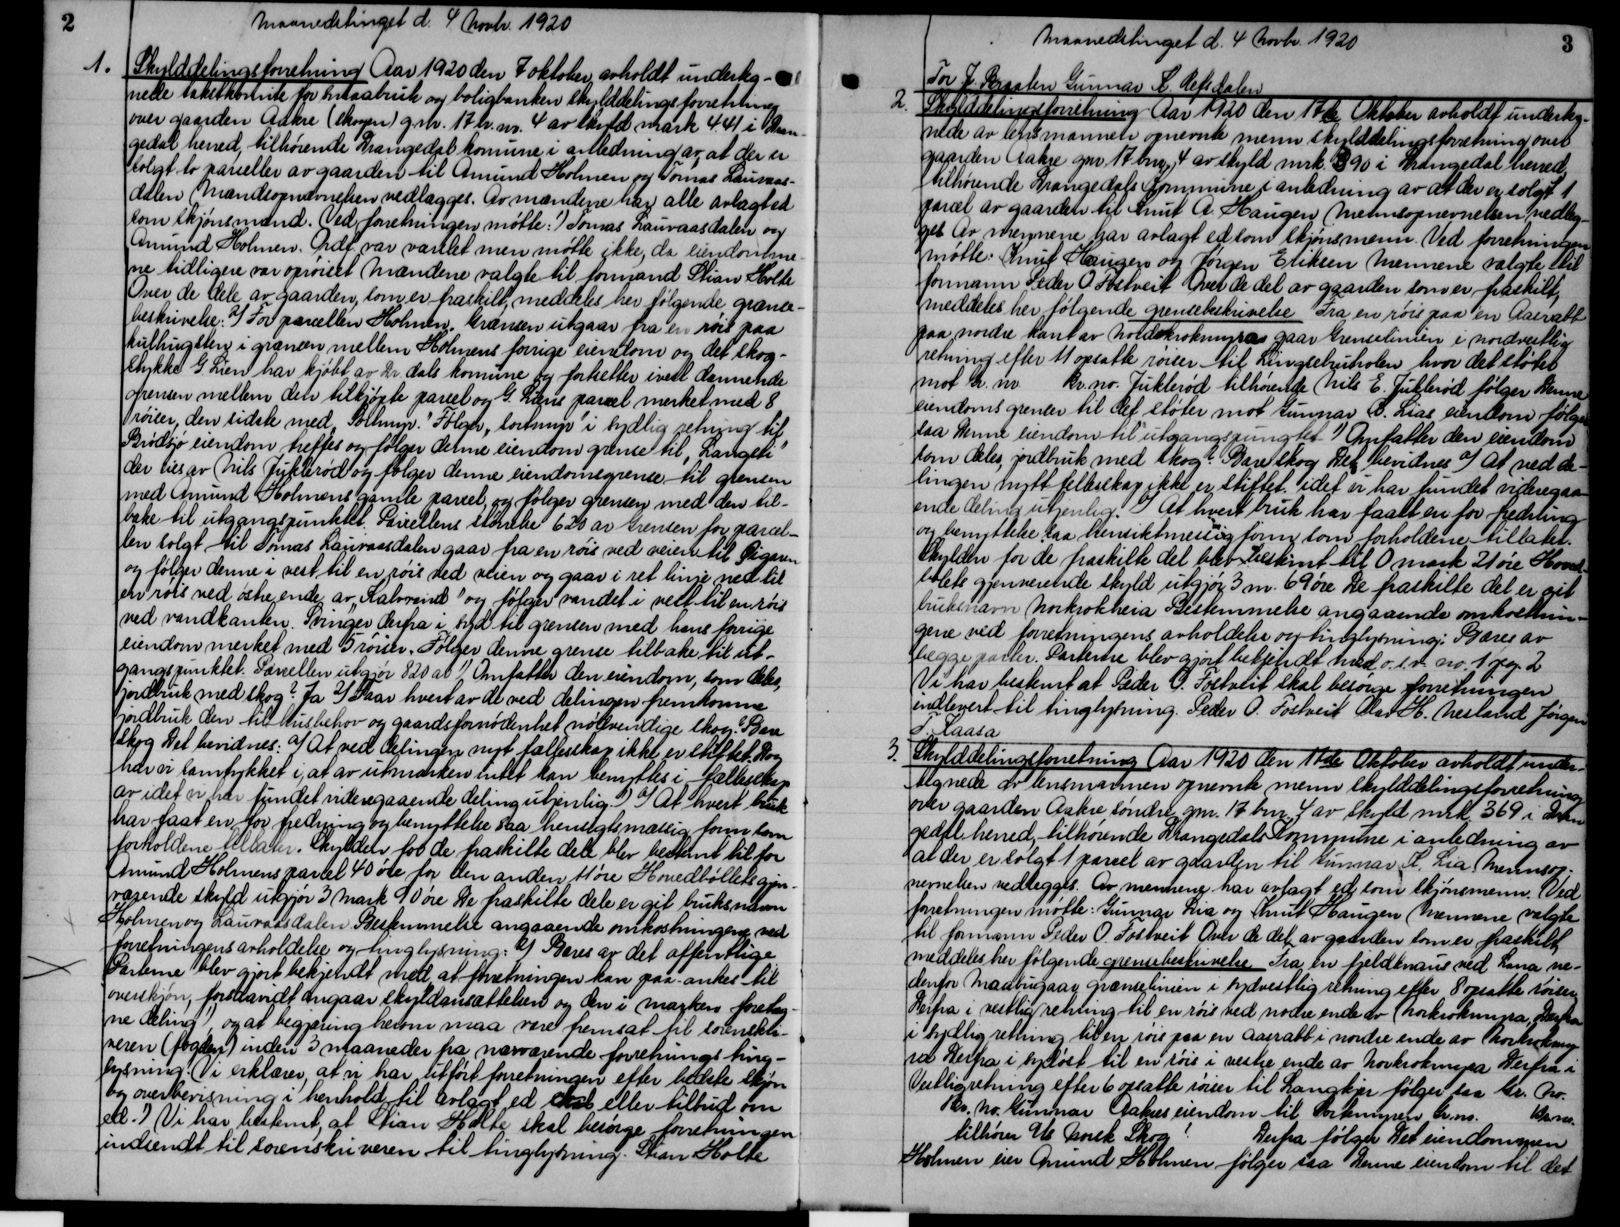 2
Maanedstinget d. 4 Novbr. 1920
1. Skylddelingsforretning Aar 1920 den 7 oktober avholdt underteg-
nede takstkomite for Smaabruk og boligbanken skylddelingsforretning
over gaarden Aakre (skogen) g.nr. 17 br. nr. 4 av skyld mark 4.41 i Dran-
gedal herred, tilhørende Drangedal komune i anledning av at der er
solgt to parseller av gaarden til Amund Holmen og Tomas Lauvaas-
dalen Mændsopnævnelsen vedlægges. Av mændene har alle avlagt ed
som skjønsmænd. Ved forretningen møtte: 1) Tomas Lauvaasdalen og
Amund Holmen. Ordf. var varslet men møtte ikke, da eiendomme-
ne tidligere var oprøiset Mændene valgte til formand Stian Holte
Over de dele av gaarden, som er fraskilt, meddeles her følgende grænse-
beskrivelse: a) For parsellen Holmen. Grænsen utgaar fra en røis paa
hulhugsten i grænsen mellem Holmens forrige eiendom og det skog-
stykke G Lien har kjøbt av Dr.dals komune og fortsetter i vest dannende
grensen mellem den tilkjøpte parsel og G. Liens parsel merket med 8
røiser, den sidste med "Tortmyr". Følger "tortmyr" i sydlig retning til
Brødsjø eiendom treffes og følger denne eiendom grænse til "Langeli"
der eies av Nils Juklerød og følger denne eiendomsgrense til grensen
med Amund Holmens gamle parsel, og følger grensen med den til-
bake til utgangspunktet. Parsellens størrelse 620 ar Grensen for parcel-
len solgt til Tomas Lauvaasdalen gaar fra en røis ved veien til
og følger denne i vest til en røis ved veien og gaar i ret linje ned til
en røis ved østre ende av "Kalvveind" og følger vandet i vest til en røis
ved vandkanten. Svinger derfra i syd til grensen med hans forrige
eiendom merket med 5 røiser. Følger denne grense tilbake til ut-
gangspunktet. Parsellen utgjør 820 ar 1) Omfatter den eiendom, som deles,
jordbruk med skog? Ja 2) Faar hvert av de ved delingen fremkomne
jordbruk den til husbehov og gaardsfornødenhet nødvendige skog? Bare
skog Det bevidnes: a) At ved delingen nyt fællesskap ikke er stiftet. Dog
har vi samtykket i, at av utmarken intet kan benyttes i fællesskap
av idet vi har fundet videregaaende deling utjenlig. 1) a) At hvert bruk
har faat en for fredning og benyttelse saa hensigtsmæssig form som
forholdene tillater. Skylden for de fraskilte dele blev bestemt til for
Amund Holmens parsel 40 øre for den anden 11 øre Hovedbøllets gjen-
værende skyld utgjør 3 mark 90 øre De fraskilte dele er git bruksnavn
Holmen og Lauvaasdalen Bestemmelse angaaende omkostningene ved
forretningens avholdelse og tinglysning: 2) Bæres av det offentlige
Parterne blev gjort bekjendt med, at forretningen kan paa-ankes til
overskjøn, forsaavidt angaar skyldansættelsen og den i marken foretag-
ne deling 1), og at begjæring herom maa være fremsat til sorenskri-
veren (fogden) inden 3 maaneder fra nærværende forretnings ting-
lysning. Vi erklærer, at vi har utført forretningen efter bedste skjøn
og overbevisning i henhold til avlagt ed eller tilbud om
ed. 1) Vi har bestemt, at Stian Holte skal besørge forretningen
indsendt til sorenskriveren til tinglysning. Stian Holte
3
Maanedstinget d. 4 Novbr. 1920
Tor J. Braaten Gunnar K. Refsdalen
2. Skylddelingsforretning Aar 1920 den 17de Oktober avholdt underteg-
nede av lensmannen opnevnte menn skylddelingsforretning over
gaarden Aakre gnr 17 bnr. 4 av skyld mrk. 390 i Drangedal herred,
tilhørende Drangedals kommune i anledning av at der er solgt 1
parcel av gaarden til Knut A. Haugen Mennsopnevnelsen vedleg-
ges Av mennene har avlagt ed som skjønsmenn. Ved forretningen
møtte: Knut Haugen og Jørgen Eriksen Mennene valgte til
formann Peder O. Tostveit Over de del av gaarden som er fraskilt,
meddeles her følgende grensebeskrivelse Fra en røis paa en Aaerabb
paa nordre kant av Nordokrokmyra gaar Grenselinien i nordvestlig
retning efter 11 opsatte røiser til hvor det støter
mot Gr. nr Br. no. Juklerød tilhørende Nils E. Juklerød følger Denne
eiendoms grenser til det støter mot Gunnar B. Lias eiendom følger
saa Denne eiendom til utgangspungtet 1) Omfatter den eiendom
som deles, jordbruk med skog? Bare skog Det bevidnes a) At ved de-
lingen nytt fellesskap ikke er stiftet. idet vi har fundet videregaa-
ende deling utjenlig. 1) At hvert bruk har faatt en for fredning
og benyttelse saa hensiktmessig form som forholdene tillater.
Skylden for de fraskilte del blev bestemt til 0 mark 21 øre Hoved-
bølets gjenværende skyld utgjør 3 m. 69 øre De fraskilte del er git
bruksnavn Norkrokheia Bestemmelse angaaende omkostnin-
gene ved forretningens avholdelse og tinglysning: Bæres av
begge parter. Parterne blev gjort bekjendt med o.s.v. no. 1 pg. 2
Vi har bestemt at Peder O. Tostveit skal besørge forretningen
endlevert til tinglysning. Peder O. Tostveit Olav H. Nesland Jørgen
T. Kaasa
3. Skylddelingsforretning Aar 1920 den 11te Oktober avholdt under-
tegnede av lensmannen opnevnte menn skylddelingsforretning
over gaarden Aakre søndre gnr. 17 bnr. 4 av skyld mrk. 369 i Dran
gedal herred, tilhørende Drangedals kommune i anledning av
at der er solgt 1 parcel av gaarden til Gunnar K. Lia Mennsop-
nevnelsen vedlegges. Av mennene har avlagt ed som skjønsmenn. Ved
forretningen møtte: Gunnar Lia og Knut Haugen Mennene valgte
til formann Peder O. Tostveit Over de del av gaarden som er fraskilt,
meddeles her følgende grensebeskrivelse Fra en fjeldknaus ved Lana ne-
denfor Maabugaar grænselinien i sydvestlig retning efter 8 opsatte røiser
Derfra i vestlig retning til en røis ved nordre ende av Norkrokmyra, Derfra
i sydlig retning til en røis paa en aaerabb i nordre ende av Norkrokmy
ra Derfra i sydøst til en røis i vestre ende av Norkrokmyra Derfra i
Vestlig retning efter 6 opsatte røiser til Langkjer følger saa Gr. No.
Br. No. Gunnar Aakres eiendom til Torkmyren Gr. no. Br. no.
tilhører Us Norsk Skog! Derfra følger Det eiendommen
Holmen eier Amund Holmen følger saa Denne eiendom til det